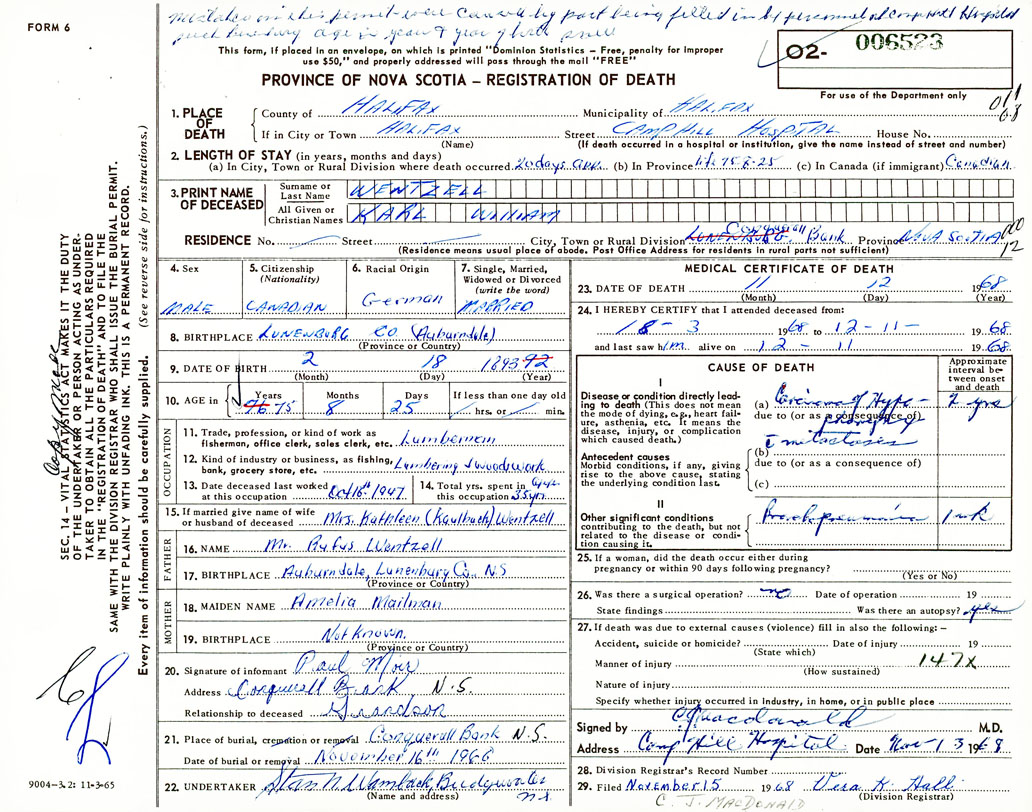 FORM 6
Mistakes on this permit were caused by part being filled in by personnel at Camp Hill Hospital
age in year & year of birth
This form, if placed in an envelope, on which is printed "Dominion Statistics – Free, penalty for improper
use $50," and properly addressed will pass through the mail "FREE"
O2- 006523
PROVINCE OF NOVA SCOTIA – REGISTRATION OF DEATH
For use of the Department only
011
68
1. PLACE OF DEATH
County of HALIFAX Municipality of HALIFAX
If in City or Town HALIFAX Street CAMP HILL HOSPITAL House No.
(Name) (If death occurred in a hospital or institution, give the name instead of street and number)
2. LENGTH OF STAY (in years, months and days)
(a) In City, Town or Rural Division where death occurred 20 days (b) In Province life 75-8-25 (c) In Canada (if immigrant) Canadian
3. PRINT NAME OF DECEASED
Surname or Last Name WENTZELL
All Given or Christian Names KARL WILLIAM
RESIDENCE No. Street City, Town or Rural Division LUNENBURG Conquerall Bank Province NOVA SCOTIA
000
12
(Residence means usual place of abode. Post Office Address for residents in rural parts not sufficient)
4. Sex
MALE
5. Citizenship (Nationality)
CANADIAN
6. Racial Origin
German
7. Single, Married, Widowed or Divorced (write the word)
MARRIED
8. BIRTHPLACE LUNENBURG CO. (Auburndale)
(Province or Country)
9. DATE OF BIRTH 2 18 1893 92
(Month) (Day) (Year)
10. AGE in Years Months Days If less than one day old
76 75 8 25 hrs. or min.
OCCUPATION
11. Trade, profession, or kind of work as fisherman, office clerk, sales clerk, etc. Lumberman
12. Kind of industry or business, as fishing, bank, grocery store, etc. Lumbering & woodswork
13. Date deceased last worked at this occupation Oct 16th 1947
14. Total yrs. spent in this occupation 35 yrs.
15. If married give name of wife or husband of deceased Mrs. Kathleen (Kaulback) Wentzell
FATHER
16. NAME Mr. Rufus Wentzell
17. BIRTHPLACE Auburndale, Lunenburg Co. N.S
(Province or Country)
MOTHER
18. MAIDEN NAME Amelia Mailman
19. BIRTHPLACE Not Known.
(Province or Country)
20. Signature of informant Paul Moir
Address Conquerall Bank, N.S.
Relationship to deceased Grandson
21. Place of burial, cremation or removal Conquerall Bank N.S.
Date of burial or removal November 16th 1968
22. UNDERTAKER Stan N Wambach, Bridgewater N.S.
(Name and address)
MEDICAL CERTIFICATE OF DEATH
23. DATE OF DEATH 11 12 1968
(Month) (Day) (Year)
24. I HEREBY CERTIFY that I attended deceased from:
18-3 1968 to 12-11- 1968
and last saw him alive on 12-11 1968.
CAUSE OF DEATH
Approximate interval between onset and death
I
Disease or condition directly leading to death (This does not mean the mode of dying, e.g., heart failure, asthenia, etc. It means the disease, injury, or complication which caused death.)
(a) Carcinoma of Hypopharynx 2 yrs
due to (or as a consequence of)
c metastasis
Antecedent causes
Morbid conditions, if any, giving rise to the above cause, stating the underlying condition last.
(b)
due to (or as a consequence of)
(c)
II
Other significant conditions
contributing to the death, but not related to the disease or condition causing it.
Bronchopneumonia 1 wk
25. If a woman, did the death occur either during
pregnancy or within 90 days following pregnancy?
(Yes or No)
26. Was there a surgical operation? no Date of operation 19
State findings Was there an autopsy? yes
27. If death was due to external causes (violence) fill in also the following: –
Accident, suicide or homicide? Date of injury 19
(State which)
Manner of injury 147X
(How sustained)
Nature of injury
Specify whether injury occurred in industry, in home, or in public place
Signed by CJ Macdonald M.D.
Address Camp Hill Hospital Date Nov 13 1968
28. Division Registrar's Record Number
29. Filed November 15 1968 Vera K. Hall
(Division Registrar)
C. J. MACDONALD
SEC. 14 – VITAL STATISTICS ACT MAKES IT THE DUTY
OF THE UNDERTAKER OR PERSON ACTING AS UNDER-
TAKER TO OBTAIN ALL THE PARTICULARS REQUIRED
IN THE "REGISTRATION OF DEATH" AND TO FILE THE
SAME WITH THE DIVISION REGISTRAR WHO SHALL ISSUE THE BURIAL PERMIT.
WRITE PLAINLY WITH UNFADING INK. THIS IS A PERMANENT RECORD.
Every item of information should be carefully supplied. (See reverse side for instructions.)
9004-3.2: 11-3-65